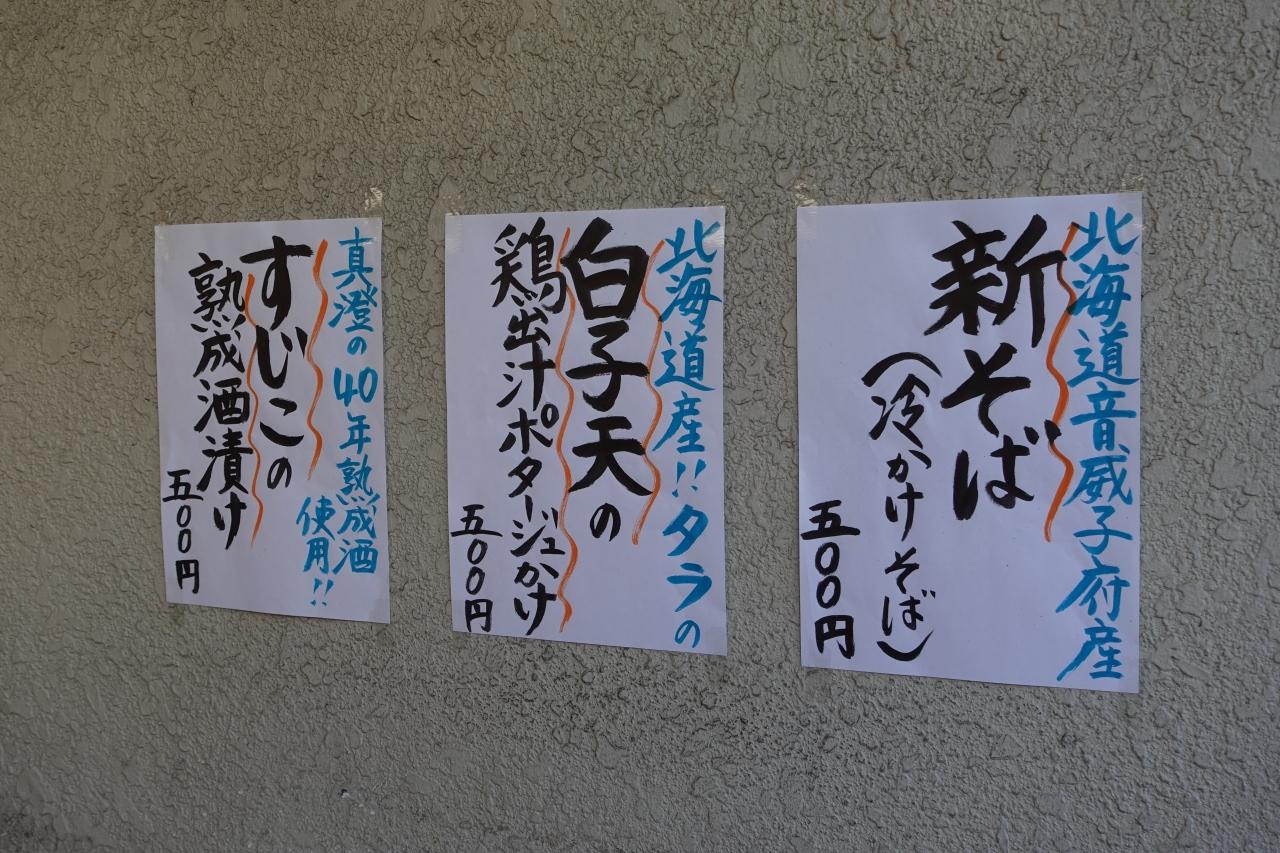 北海道音威子府産
新そば
(冷かけそば)
五〇〇円
北海道産!!タラの
白子天の
鶏出汁ポタージュかけ
五〇〇円
真澄の40年熟成酒
使用!!
すじこの
熟成酒漬け
五〇〇円